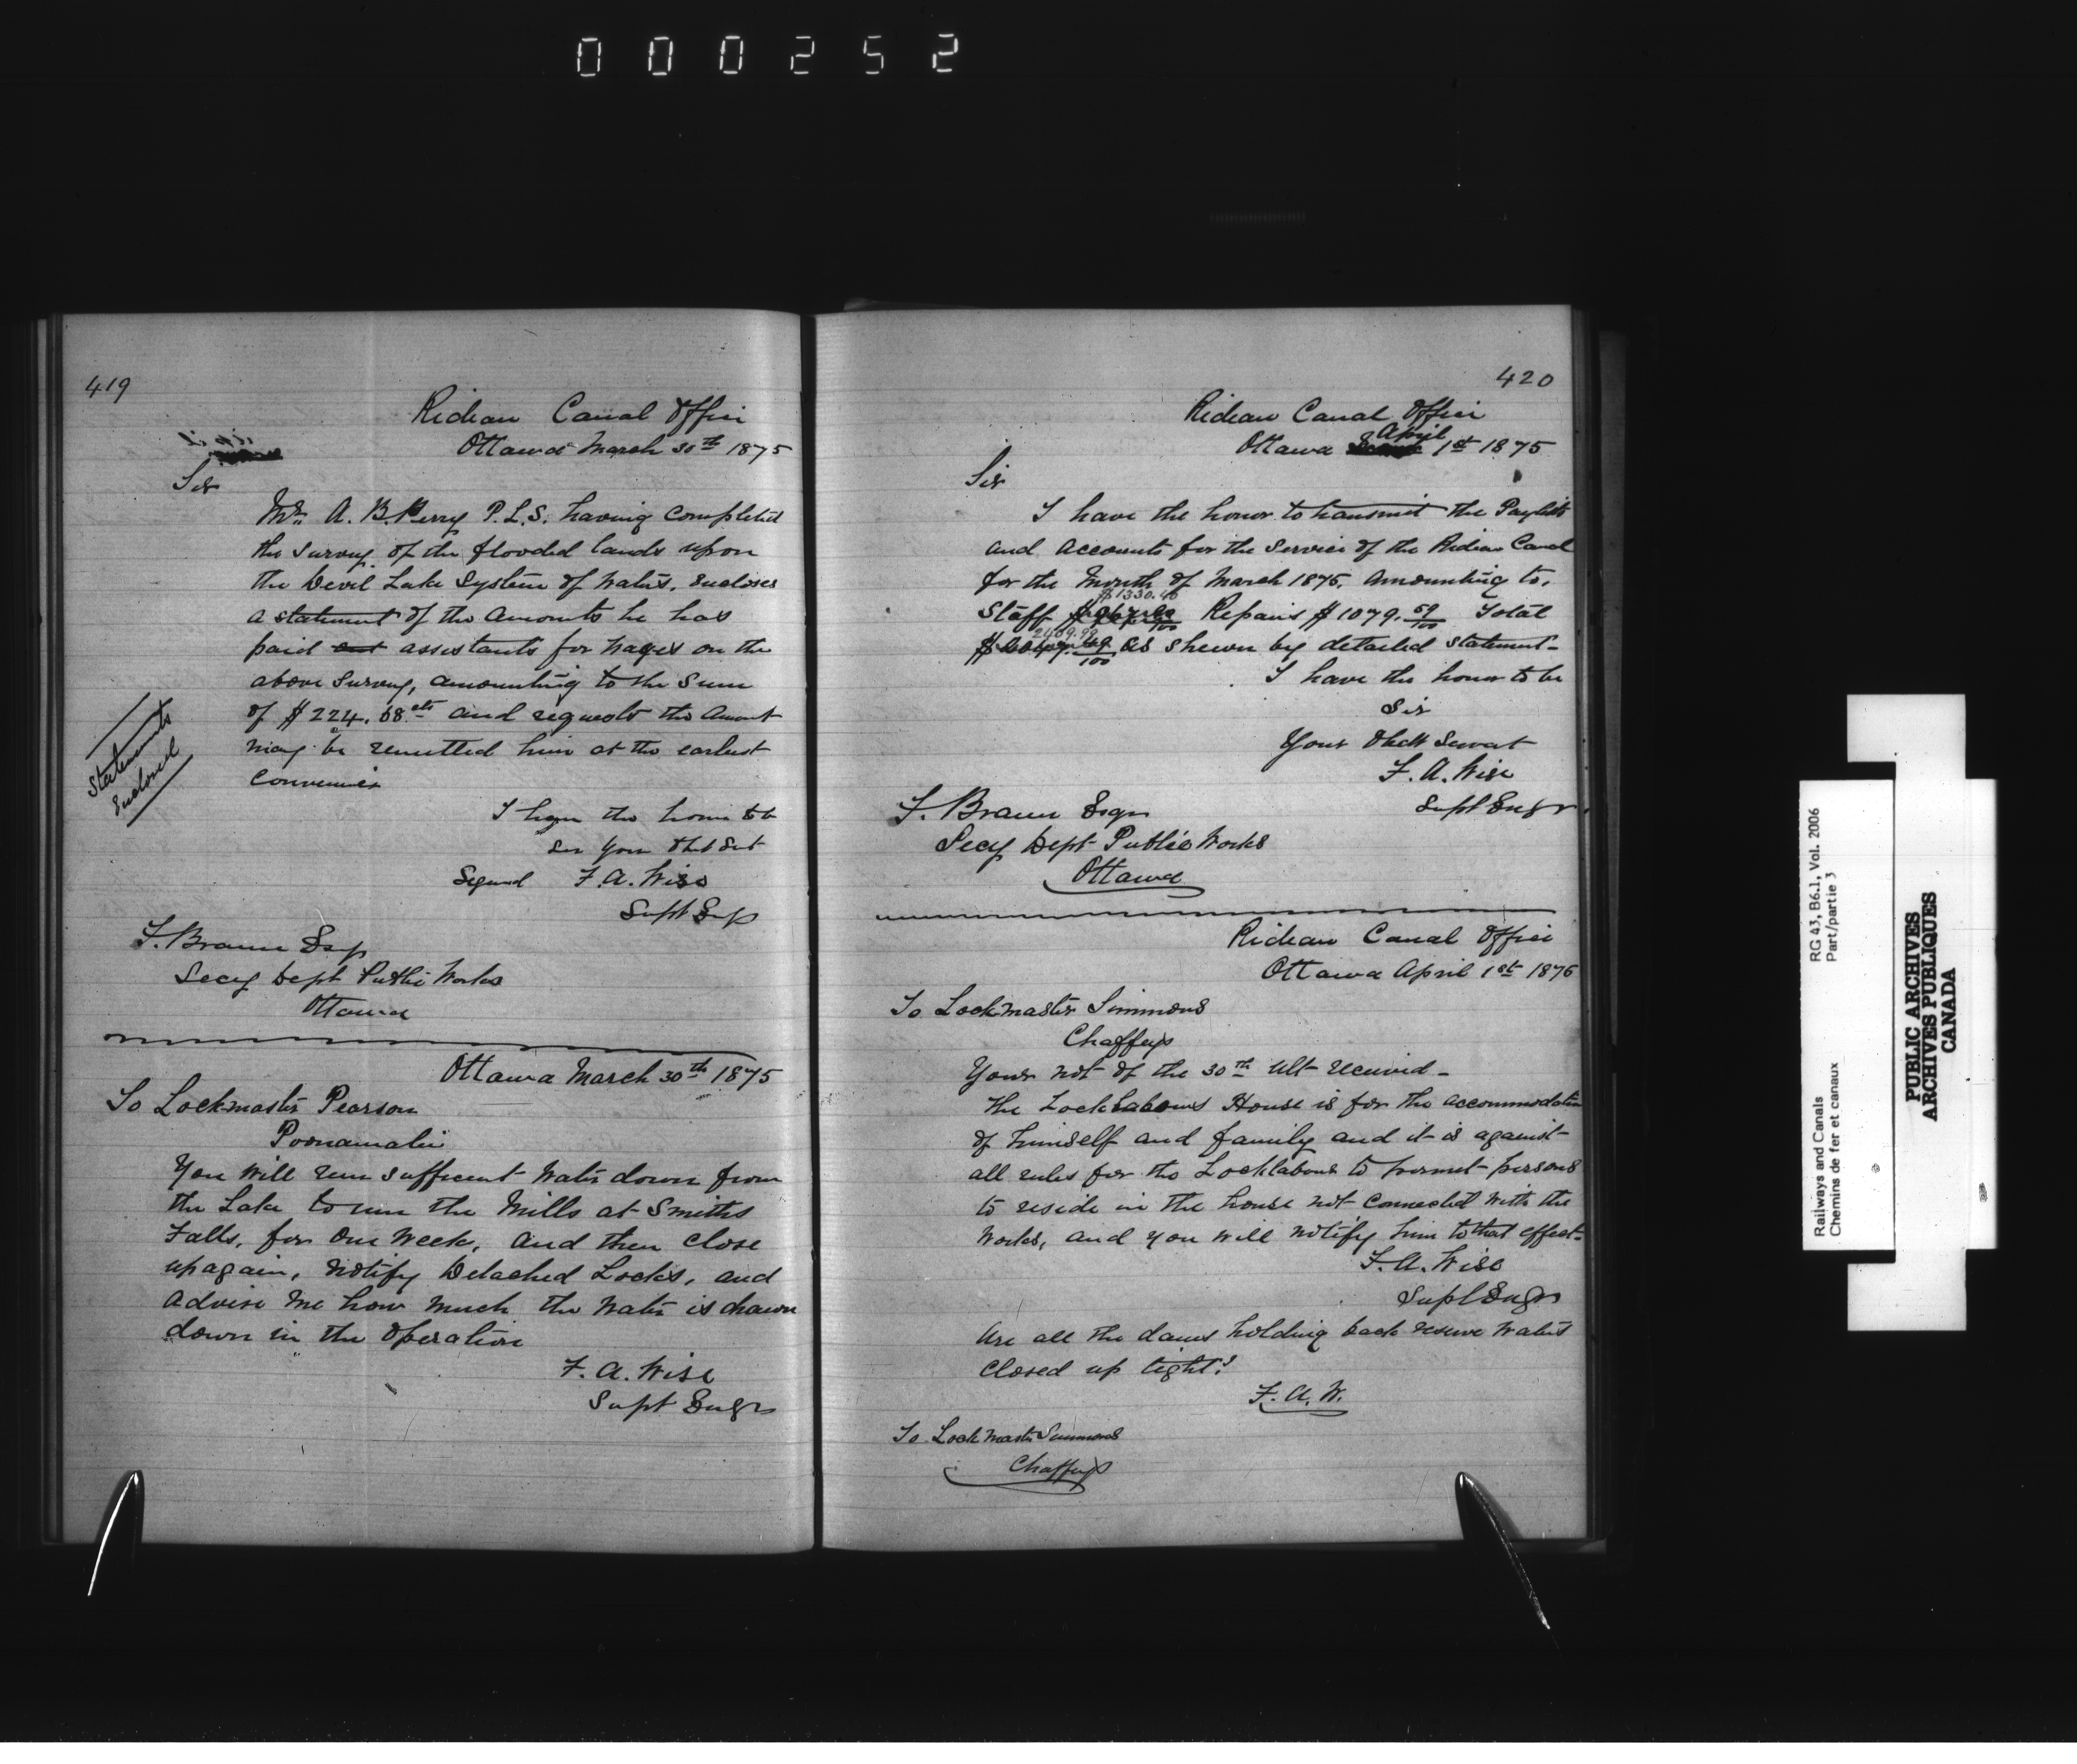 000252
419
Rideau Canal Office
Ottawa March 30th 1875
Sir
Mr. A. B. Perry P.L.S. having completed
the survey of the flooded lands upon
the Devil Lake System of Waters. encloses
a statement of the amounts he has
paid assistants for wages on the
above survey, amounting to the sum
of $224.68cts and requests the amount
may be remitted him at the earliest
convenience
Statements
Enclosed
I have the honor to be
Sir Your Obt Svt
Signed F. A. Wise
Supt Engr
F. Braun Esqr
Secy Dept Public Works
Ottawa
Ottawa March 30th 1875
To Lockmaster Pearson
Poonamalie
You will run sufficient water down from
the Lake to run the Mills at Smiths
Falls, for One Week, and then close
up again, notify Detached Locks, and
advise me how much the water is drawn
down in the operation
F. A. Wise
Supt Engr
420
Rideau Canal Office
Ottawa April 1st 1875
Sir
I have the honor to transmit the Paylists
and accounts for the service of the Rideau Canal
for the Month of March 1875. Amounting to,
$1330.40
Staff Repairs $1079. 59/100 Total
2409.99
as shewn by detailed statement-
I have the honor to be
Sir
Your Obedt Servat
F. A. Wise
Supt Engr
F. Braun Esqr
Secy Dept Public Works
Ottawa
Rideau Canal Office
Ottawa April 1st 1875
To Lockmaster Simmons
Chaffeys
Your not of the 30th ult received-
the Locklabours House is for the accommodation
of himself and family and it is against
all rules for the Locklabour to permet persons
to reside in the house not connected with the
Works, and you will notify him to that effect-
F. A. Wise
Supt Engr
Are all the dams holding back reserve waters
closed up tight?
F. A. W.
To Lockmaster Simmons
Chaffeys
Railways and Canals
Chemins de fer et canaux
RG 43, B6.1, Vol. 2006
Part/partie 3
PUBLIC ARCHIVES
ARCHIVES PUBLIQUES
CANADA